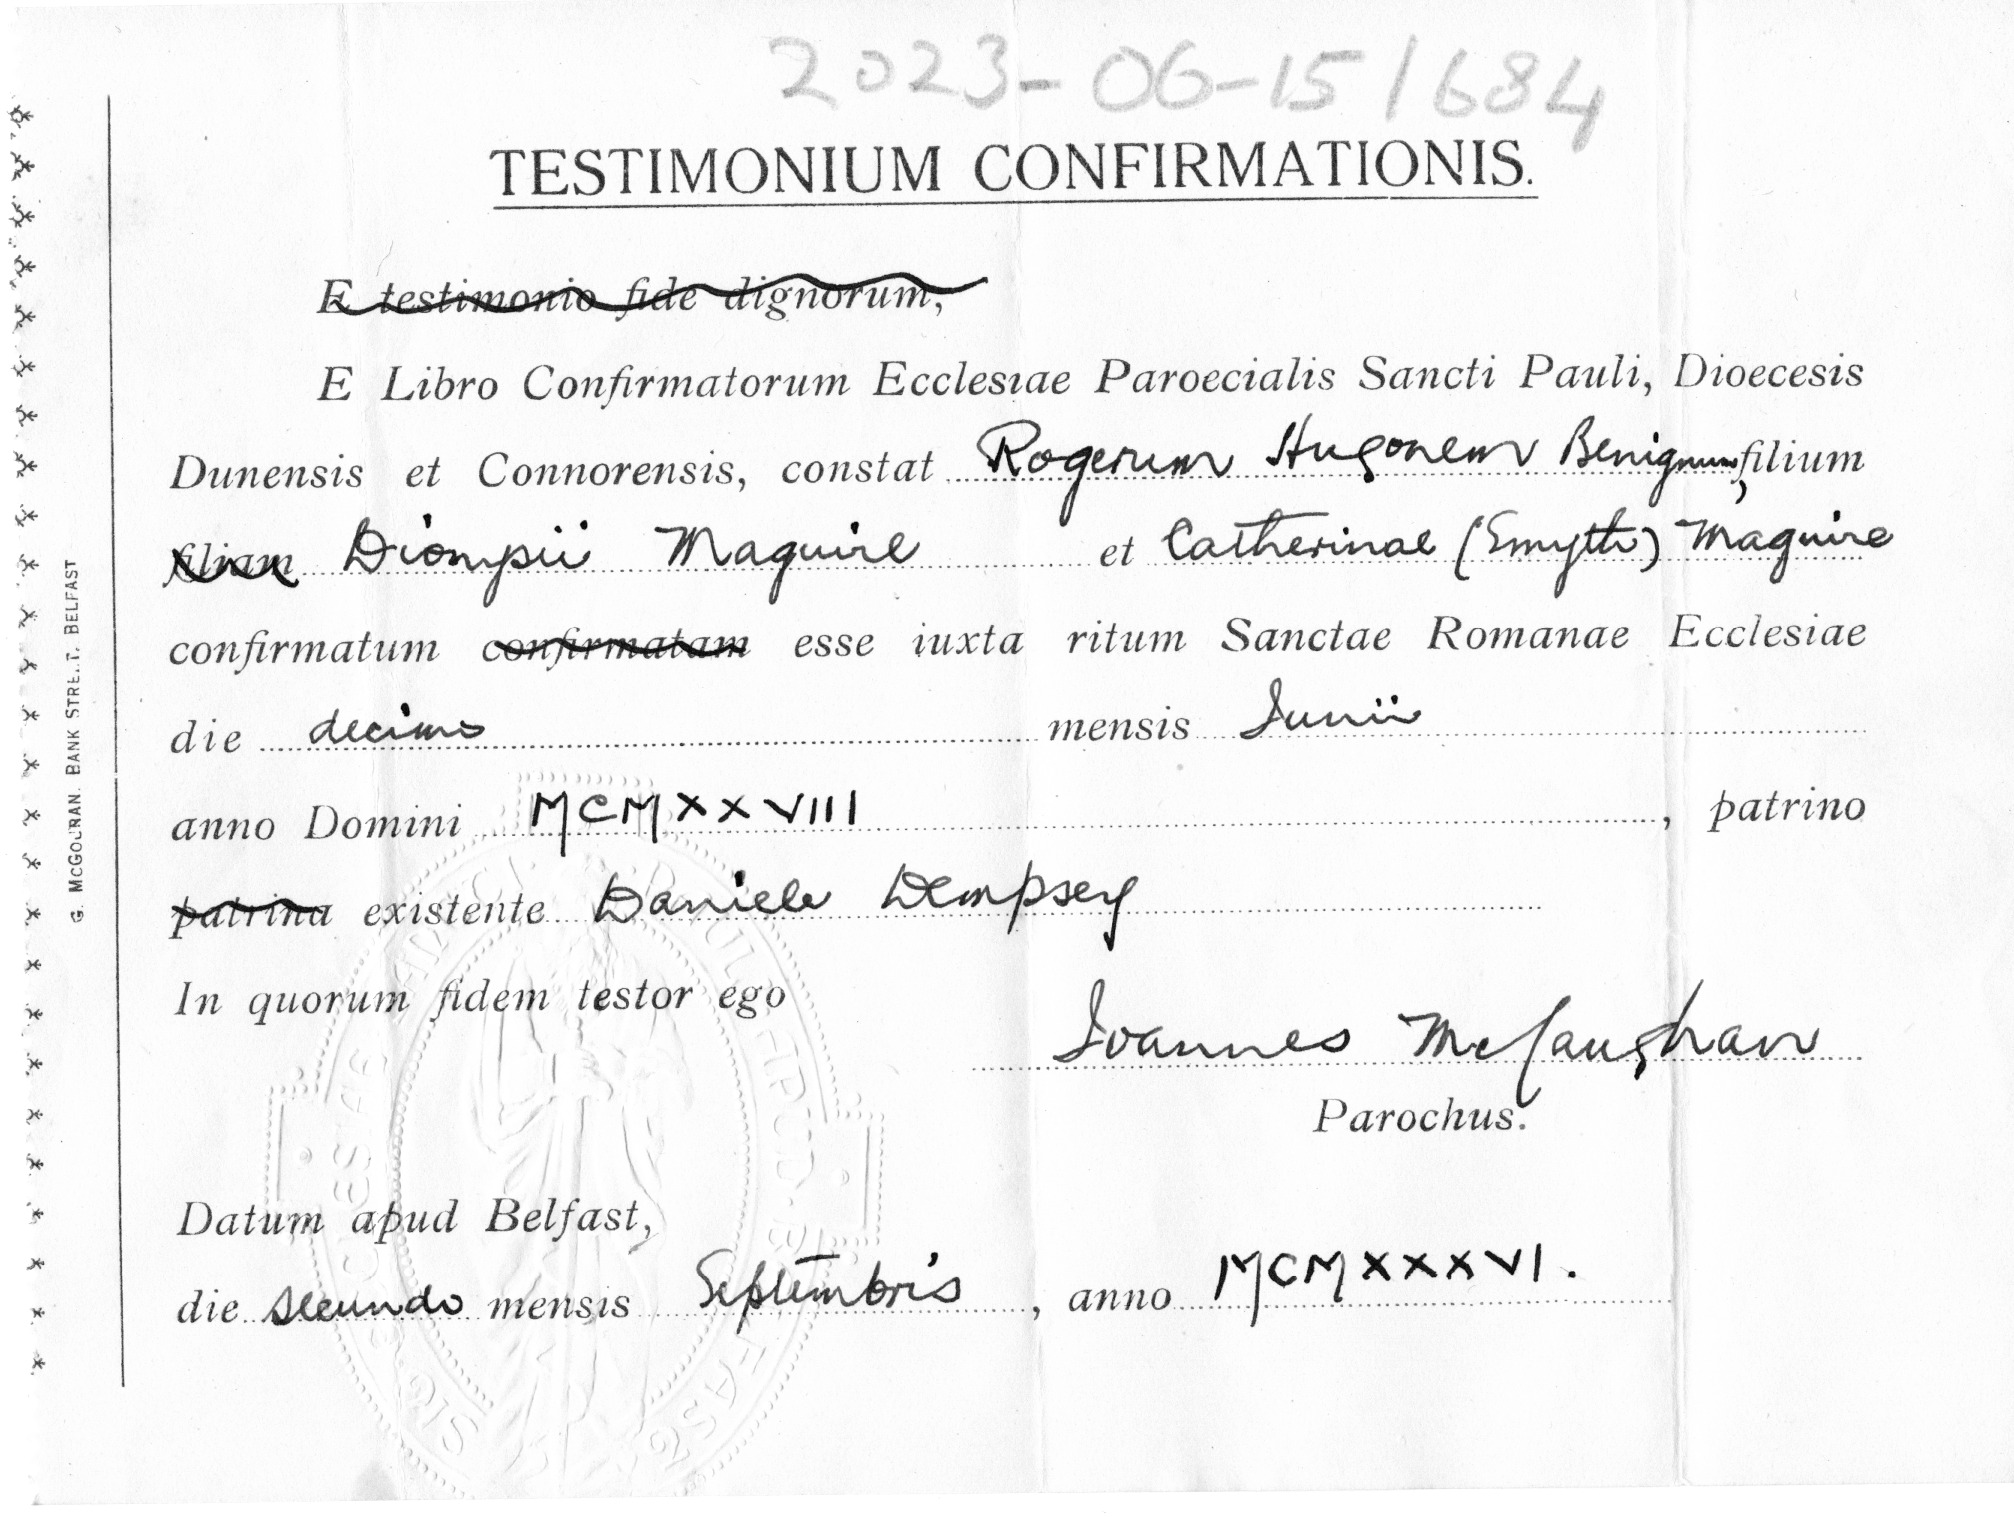 2023-06-15/684
TESTIMONIUM CONFIRMATIONIS.
E testimonio fide dignorum,
E Libro Confirmatorum Ecclesiae Paroecialis Sancti Pauli, Dioecesis
Dunensis et Connorensis, constat Rogerum Hugonem Benignum, filium
filiam Dionysii Maguire et Catherinae (Smyth) Maguire
confirmatum confirmatam esse iuxta ritum Sanctae Romanae Ecclesiae
die decimo mensis Junii
anno Domini MCMXXVIII, patrino
patrina existente Daniele Dempsey
In quorum fidem testor ego
Joannes McCaughan
Parochus.
Datum apud Belfast,
die secundo mensis Septembris, anno MCMXXXVI.
G. McGOURAN. BANK STREET. BELFAST